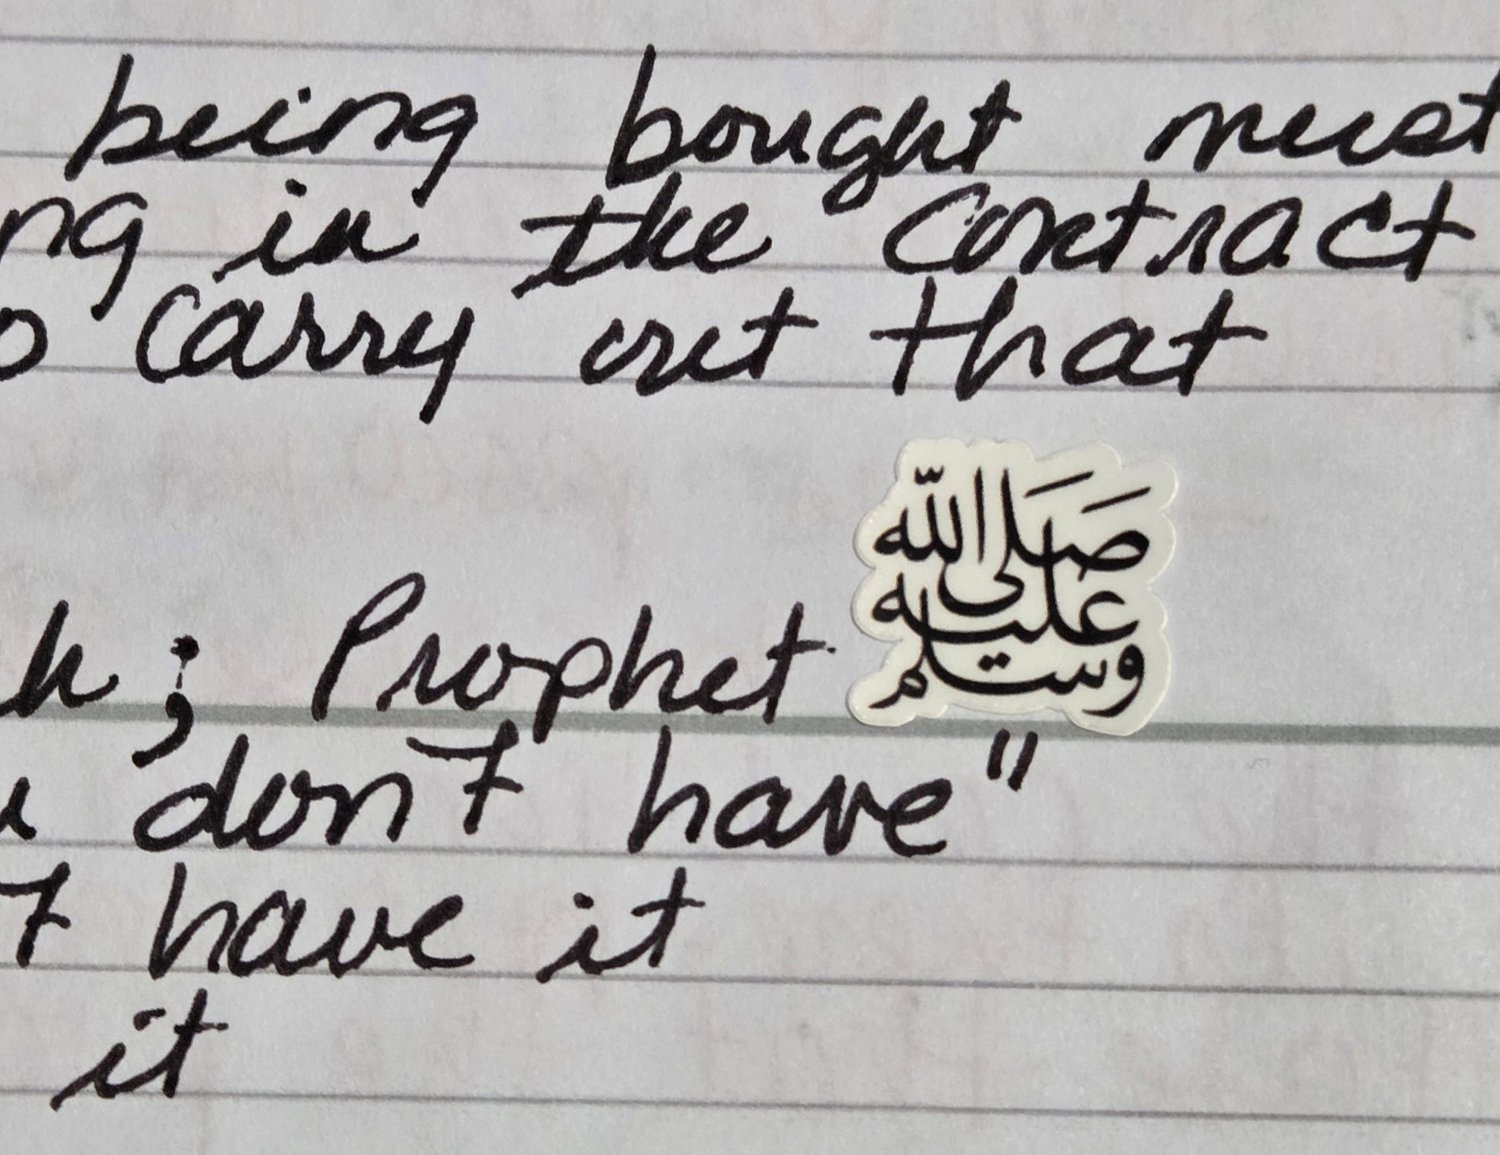 being bought must
ng in the contract
o carry out that
h; Prophet صَلَى اللّٰه عليه وسلم
don't have"
t have it
it